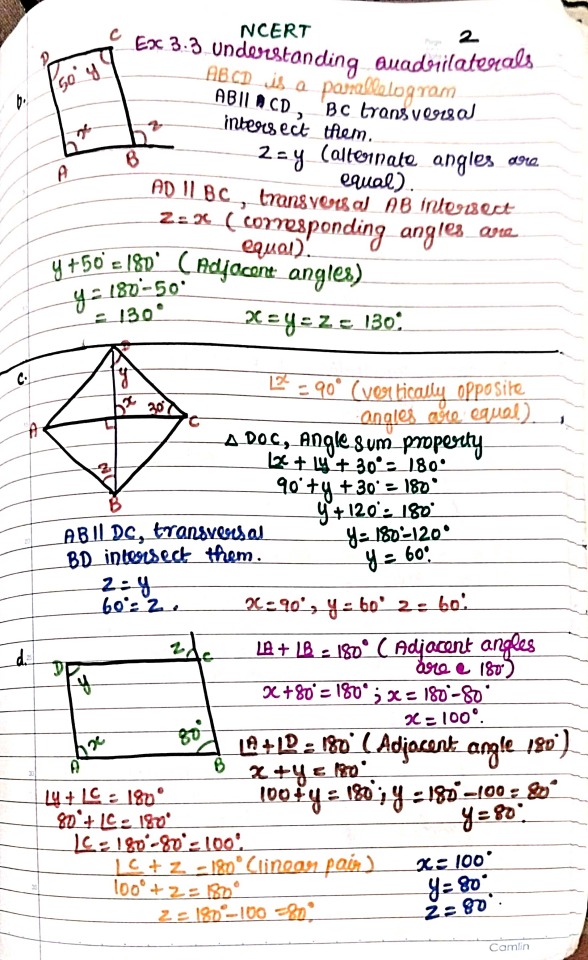 NCERT
2
Ex 3.3 Understanding Quadrilaterals
b.
D
C
50° y
x
z
A
B
ABCD is a parallelogram
AB||CD, BC transversal
intersect them.
z = y (alternate angles are
equal).
AD || BC, transversal AB intersect
z = x (corresponding angles are
equal).
y + 50° = 180° (Adjacent angles)
y = 180° - 50°
= 130°
x = y = z = 130°.
c.
D
y
x
30°
A
C
z
B
∠x = 90° (vertically opposite
angles are equal).
△ DOC, Angle sum property
∠x + ∠y + 30° = 180°
90° + y + 30° = 180°
y + 120° = 180°
y = 180° - 120°
y = 60°.
AB || DC, transversal
BD intersect them.
z = y
60° = z.
x = 90°, y = 60° z = 60°.
d.
D
z
C
y
x
80°
A
B
∠A + ∠B = 180° (Adjacent angles
are 180°)
x + 80° = 180°; x = 180° - 80°
x = 100°.
∠A + ∠D = 180° (Adjacent angle 180°)
x + y = 180°
100 + y = 180°; y = 180° - 100 = 80°
y = 80°.
∠y + ∠C = 180°
80° + ∠C = 180°
∠C = 180° - 80° = 100°.
∠C + z = 180° (linear pair)
100° + z = 180°
z = 180° - 100 = 80°.
x = 100°
y = 80°
z = 80°.
Camlin